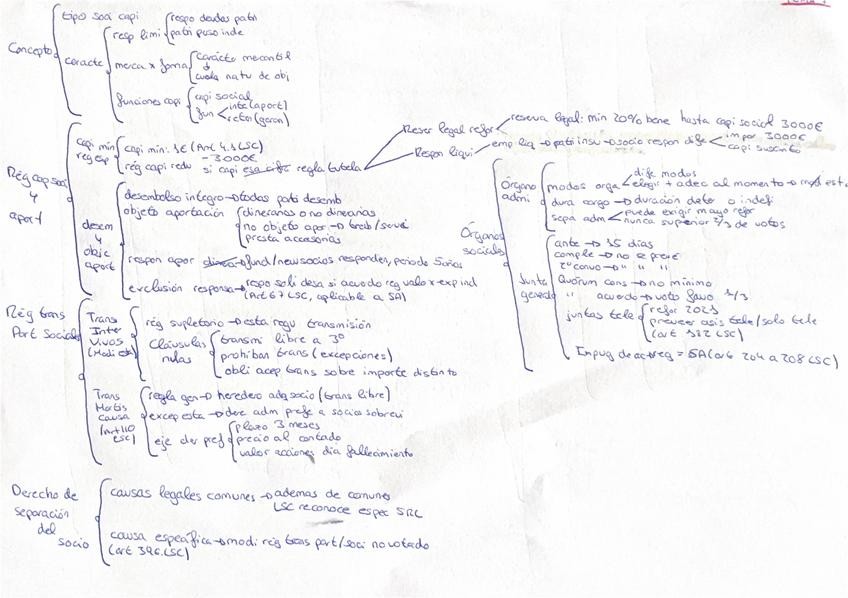 Concepto
tipo soci capi
caracte
resp limi
respo deudas patri
patri puso inde
merca x forma
carácte mercantil
cuala natu de obj
funciones capi
capi social
fun
inte(aport)
reten(garan)
Rég cap soci
y
aport
capi min
reg esp
capi min: 1€ (Art 4.1 LSC)
-3000€
rég capi redu si capi esa cifra regla tutela
Reser legal refor
reserva legal: min 20% bene hasta capi social 3000€
Respon liqui
emp liq → patri insu → socio respon dife
impor 3000€
capi suscrito
desem
y
obje
aport
desembolso integro → todas parti desemb
objeto aportación
dinerarias o no dinerarias
no objeto apor → trab/servi
presta accesorias
respon apor → fund/new socios responden, periodo 5 años
exclusión responsa → respo soli desa si acuerdo reg valor x exp ind
(Art 67 LSC, aplicable a SA)
Rég trans
Part Sociales
Trans
Inter
Vivos
(Modi est)
rég supletorio → esta regu transmisión
Cláusulas
nulas
transmi libre a 3º
prohiban trans (excepciones)
obli acep trans sobre importe distinto
Trans
Mortis
causa
(Art 110
LSC)
regla gen → heredero adq socio (trans libre)
excep esta → dere adm prefe a socios sobrevi
eje der pref
plazo 3 meses
precio al contado
valor acciones día fallecimiento
Derecho de
separación
del
socio
causas legales comunes → ademas de comunes
LSC reconoce espec SRL
causa específica → modi rég trans part/soci no votado
(art 346 LSC)
Órganos
sociales
Órgano
admi
modos orga
dife modos
elegir + adec al momento → mod est.
dura cargo → duración deter o indefi
sepa adm
puede exigir mayo refor
nunca superior 2/3 de votos
Junta
general
ante → 15 dias
comple → no se preve
2º convo → " " "
Quórum cons → no mínimo
" acuerdo → voto favo 1/3
juntas tele
refor 2021
preveer asis tele/solo tele
(art 182 LSC)
Impug de act → reg = SA (art 204 a 208 LSC)